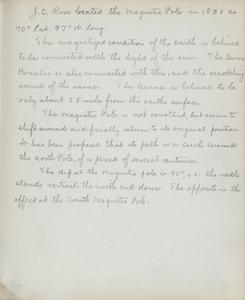 J. C. Ross located the Magnetic Pole in 1831 as
70° Lat 97° W. Long.
The magnetized condition of the earth is believed
to be connected with the light of the sun. The Aurora
Borealis is also connected with this, and the crackling
sound of the same. The Aurora is believed to be
only about 25 miles from the earths surface.
The Magnetic Pole is not constant, but seems to
shift around and finally return to its original position.
It has been proposed that its path is a circle around
the north Pole, of a period of several centuries.
The dip at the Magnetic pole is 90°, i.e. the needle
stands vertical, the north end down. The opposite is the
effect at the South Magnetic Pole.